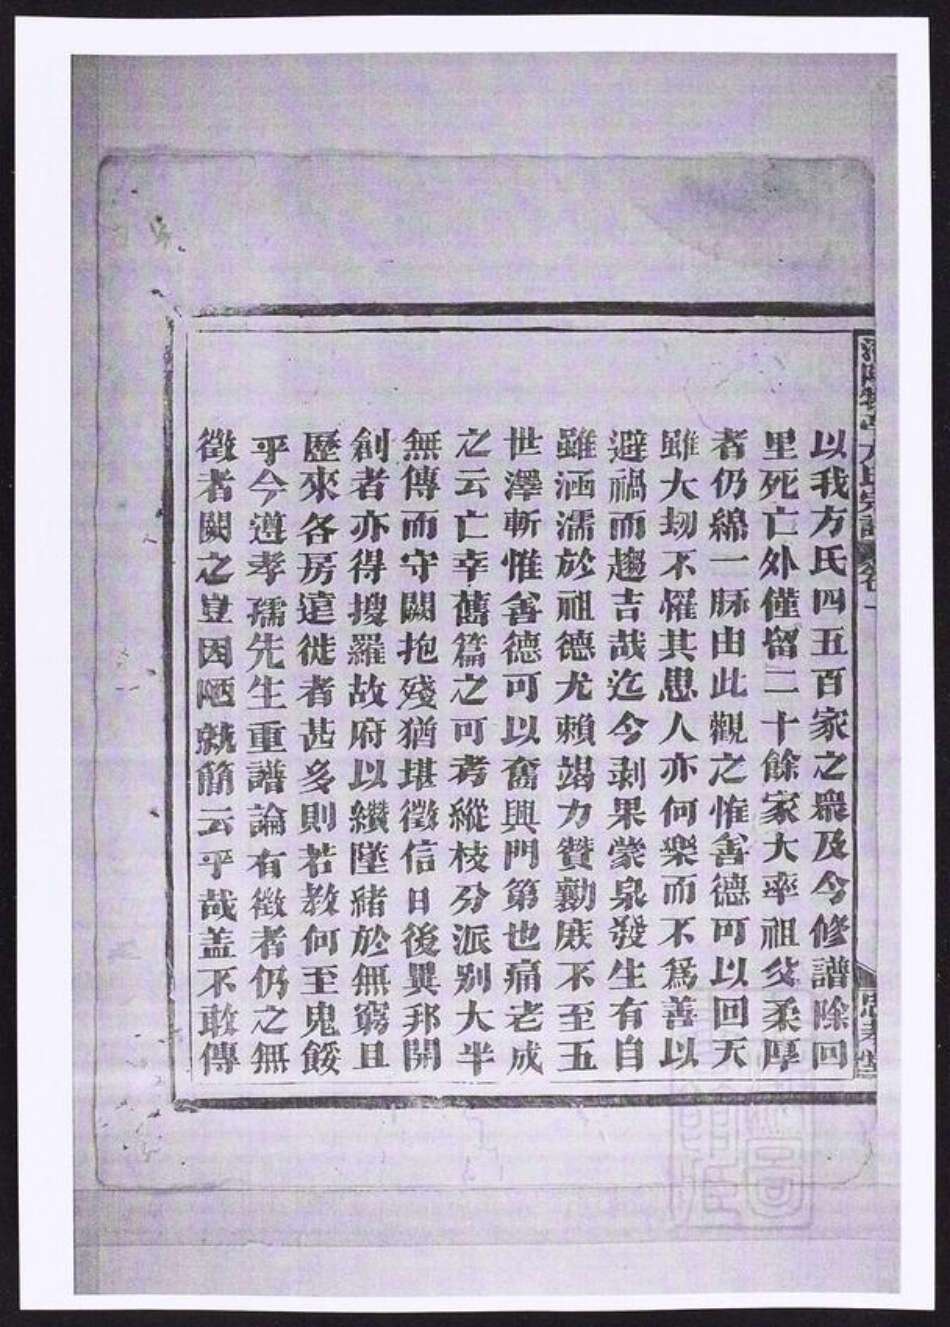 以我方氏四五百家之衆及今修譜除回
里死亡外僅留二十餘家大率祖父柔厚
者仍綿一脈由此觀之惟善德可以回天
雖大刼不懼其思人亦何樂而不爲善以
避禍而趨吉哉迄今剥果蒙泉發生有自
雖涵濡於祖德尤賴竭力贊勷庶不至五
世澤斬惟善德可以奮興門第也痛老成
之云亡幸舊篇之可考縱枝分派别大半
無傳而守闕抱殘猶堪徵信日後異邦開
創者亦得搜羅故府以纘墜緒於無窮且
歷來各房遠徙者甚多則若敖何至鬼餒
乎今遵孝孺先生重譜論有徵者仍之無
徵者闕之豈因陋就簡云乎哉盖不敢傳
方氏宗譜 卷一